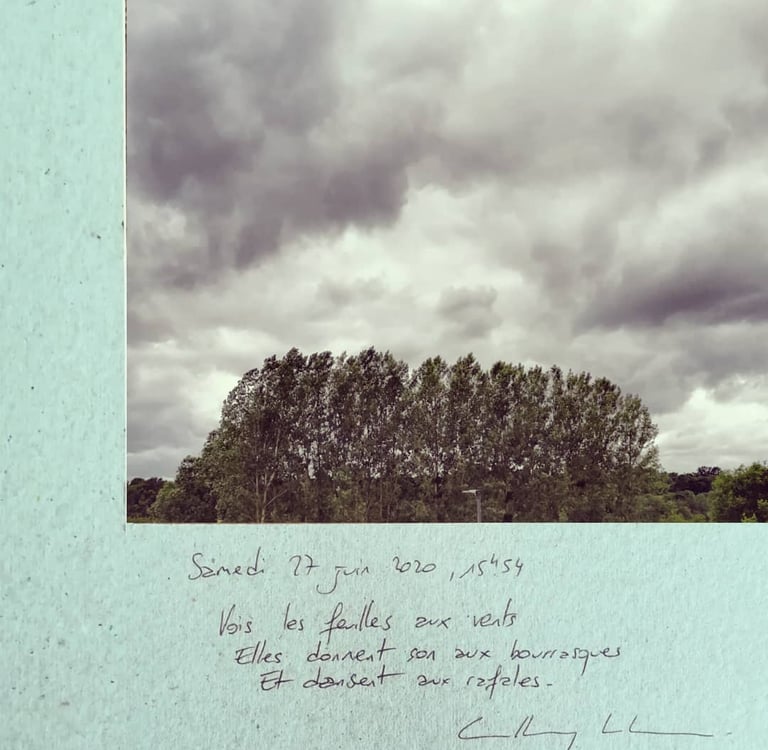 Samedi 27 juin 2020, 15h54
Vois les feuilles aux vents
Elles donnent son aux bourrasques
Et dansent aux rafales.